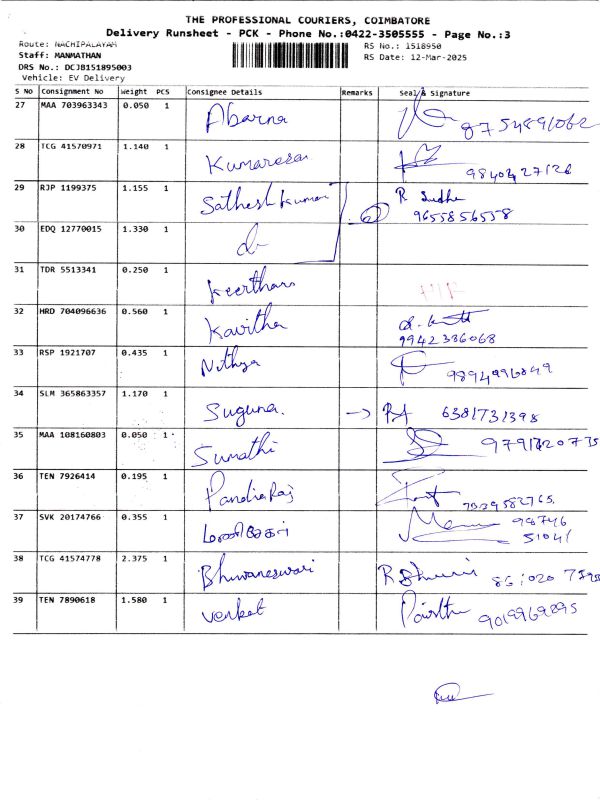 THE PROFESSIONAL COURIERS, COIMBATORE
Delivery Runsheet - PCK - Phone No.:0422-3505555 - Page No.:3
Route: NACHIPALAYAM RS No.: 1518950
Staff: MANMATHAN RS Date: 12-Mar-2025
DRS No.: DCJB15189S003
Vehicle: EV Delivery
S No Consignment No Weight PCS Consignee Details Remarks Seal & Signature
27 MAA 703963343 0.050 1 Abarna
28 TCG 41570971 1.140 1 Kumaresan
29 RJP 1199375 1.155 1 Satheshkumar R Sudha
9655856558
30 EDQ 12770015 1.330 1
31 TDR 5513341 0.250 1 Keerthana
32 HRD 704096636 0.560 1 Kavitha
9942336068
33 RSP 1921707 0.435 1 Nithya 9894996849
34 SLM 365863357 1.170 1 Suguna. 6381731398
35 MAA 108160803 0.050 1 Sumathi
36 TEN 7926414 0.195 1 PandiaRaj 7339582765.
37 SVK 20174766 0.355 1 98746
51041
38 TCG 41574778 2.375 1 Bhuvaneswari
39 TEN 7890618 1.580 1 Venket